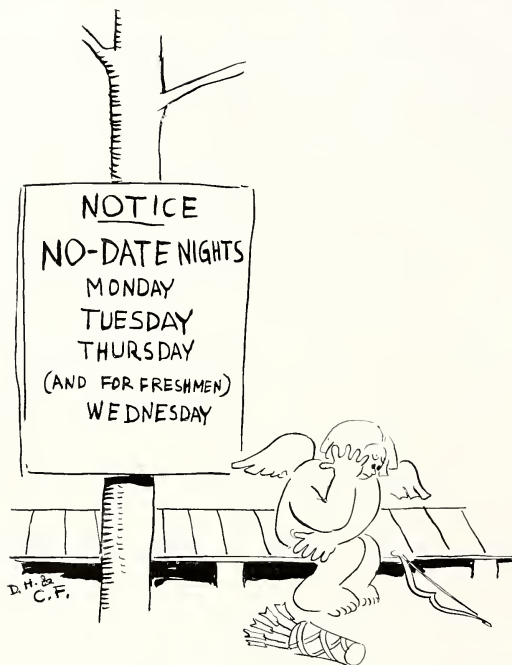 NOTICE
NO-DATE NIGHTS
MONDAY
TUESDAY
THURSDAY
(AND FOR FRESHMEN)
WEDNESDAY
D. H. &
C. F.